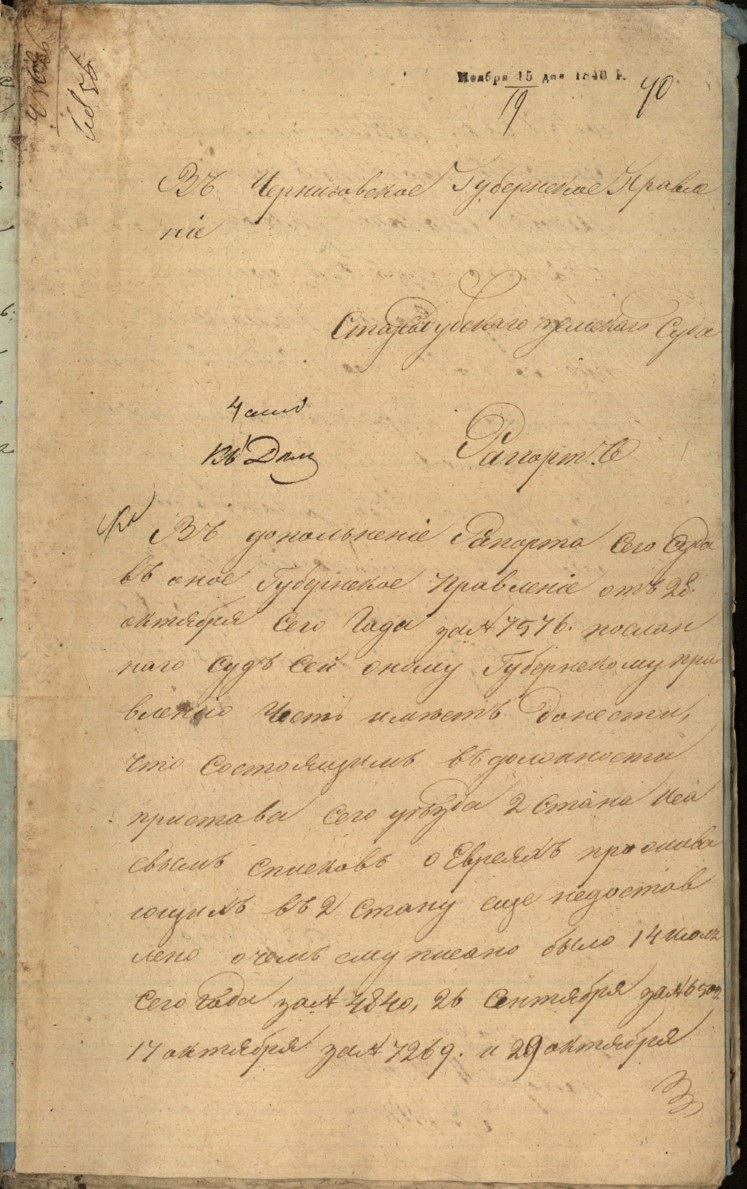 Ноября 15 дня 1840 г.
19
40.
Въ Черниговское Губернское Правле
ніе
Стародубскаго земскаго Суда
4 стол
Въ Дѣлу
Рапортъ
Въ дополненіе Рапорта сего Суда
въ оное Губернское Правленіе отъ 28
октября сего Года за № 7576. послан
наго Судъ сей оному Губернскому пра
вленію честь имѣетъ Донести,
что состоящимъ въ должности
пристава сего уѣзда 2 стана
свымъ списковъ о Евреяхъ прожива
ющихъ въ 2 стану еще недостав
лено о чемъ ему писано было 14 июля
сего Года за № 4840, 26 Сентября за №
17 октября за № 7269. и 29 октября